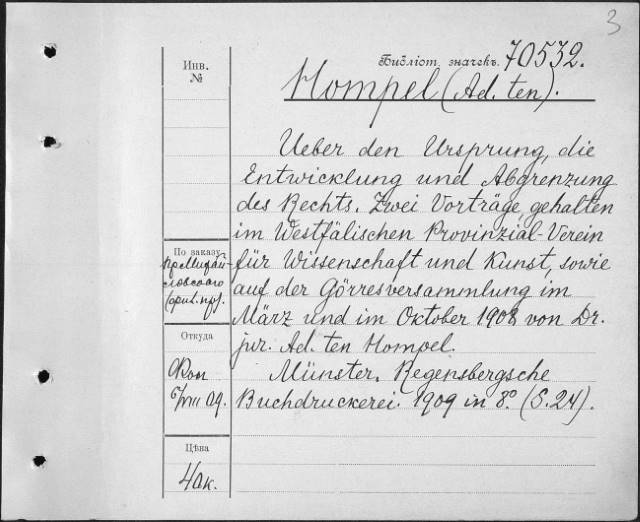 3
Библіот. значекъ. 70532.
Инв.
№
Hompel (Ad. ten).
Ueber den Ursprung, die
Entwicklung und Abgrenzung
des Rechts. Zwei Vorträge, gehalten
im Westfälischen Provinzial-Verein
für Wissenschaft und Kunst, sowie
auf der Görresversammlung im
März und im Oktober 1908 von Dr.
jur. Ad. ten Hompel.
Münster. Regensbergsche
Buchdruckerei. 1909 in 8°. (S. 24).
По заказу
пр. Михай-
ловскаго
Откуда
6/VIII 09.
Цѣна
40к.